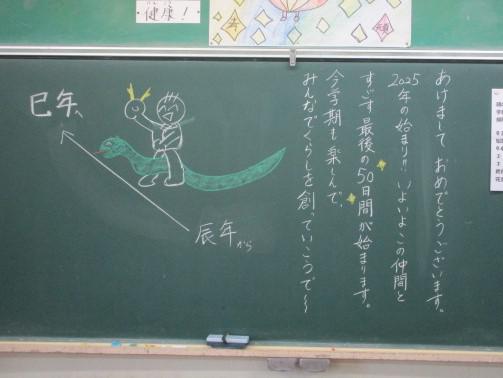 健康！
あけましておめでとうございます。
2025年の始まり!!いよいよこの仲間と
すごす最後の50日間が始まります。
今学期も楽しんで、
みんなでくらしを創っていこうで～
巳年へ
辰年から